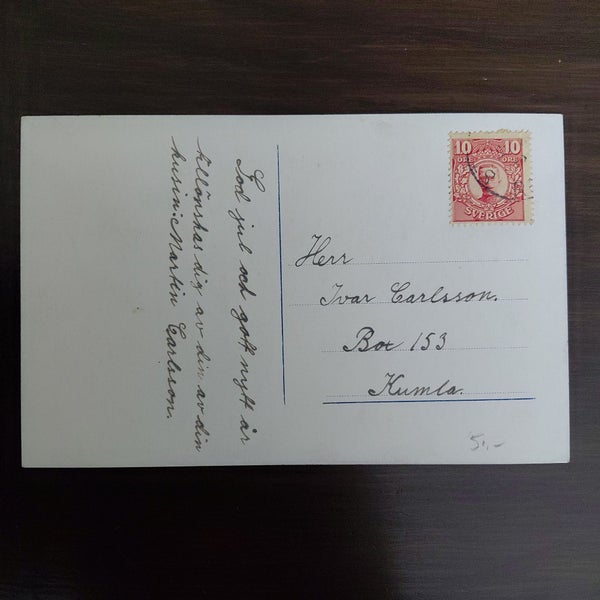 God jul och gott nytt år
tillönskas dig av din av din
kusin: Martin Carlsson.
10 10
ÖRE ÖRE
SVERIGE
Herr
Ivar Carlsson.
Box 153
Kumla.
5:-